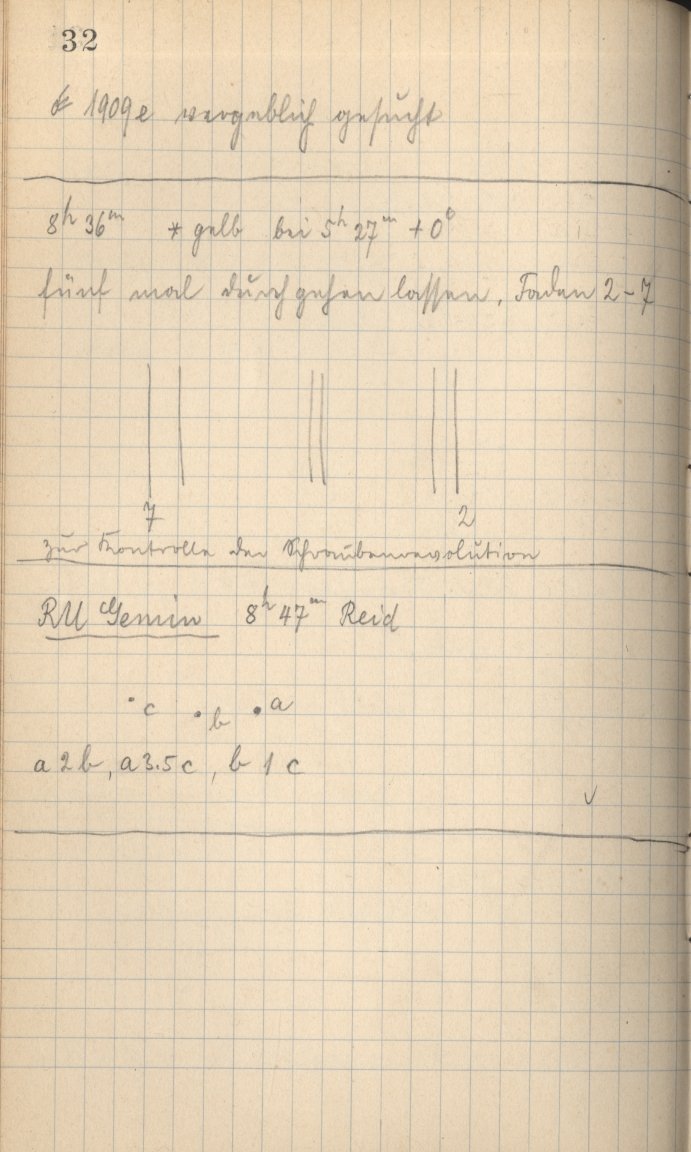 32
☄ 1909e vergeblich gesucht
8ʰ 36ᵐ * gelb bei 5ʰ 27ᵐ + 0°
fünf mal durchgehen lassen, Faden 2-7
7 2
zur Kontrolle der Schraubenrevolution
RU Gemin 8ʰ 47ᵐ Reid
c b a
a 2 b, a 3.5 c, b 1 c
✓